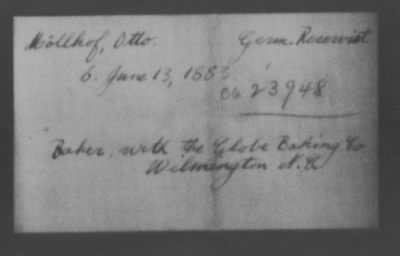 Möllhof, Otto. Germ. Reservist
b. June 13, 1883.
OG 23948
Baker with the Globe Baking Co
Wilmington N.C.